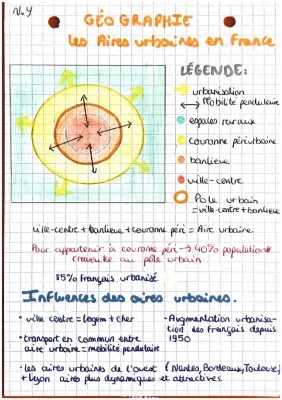 N.Y
GÉOGRAPHIE
Les Aires urbaines en France
LÉGENDE:
urbanisation
Mobilité pendulaire
espaces ruraux
Couronne périurbaine
banlieue
ville-centre
Pole urbain
=ville-centre+banlieue
ville-centre + banlieue + couronne péri = Aire urbaine.
Pour appartenir à couronne péri → 40% population
travaille au pôle urbain
85% français urbanisé
Influences des aires urbaines.
• ville centre = logem + cher
• Augmentation urbanisa-
tion des français depuis
1950
• transport en commun entre
aire urbaine = mobilité pendulaire
• les aires urbaines de l'ouest (Nantes, Bordeaux, Toulouse)
+ Lyon aires plus dynamiques et attractives